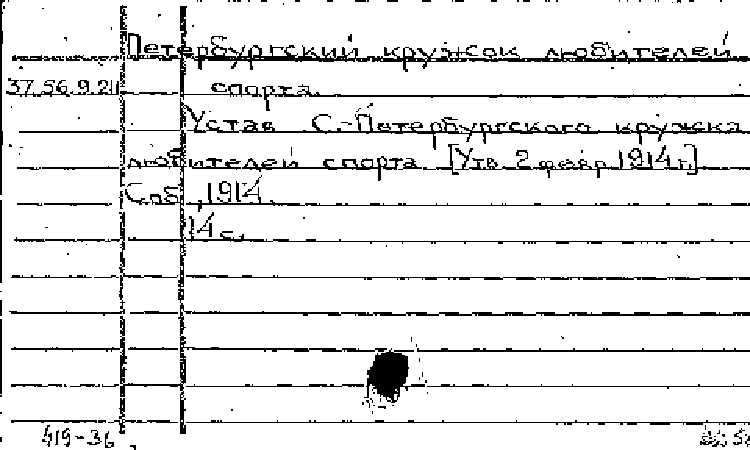 Петербургский кружок любителей
37.56.9.21 спорта.
Устав С.-Петербургского кружка
любителей спорта [Утв. 2 февр. 1914 г.]
Спб., 1914.
14 с.
419-36